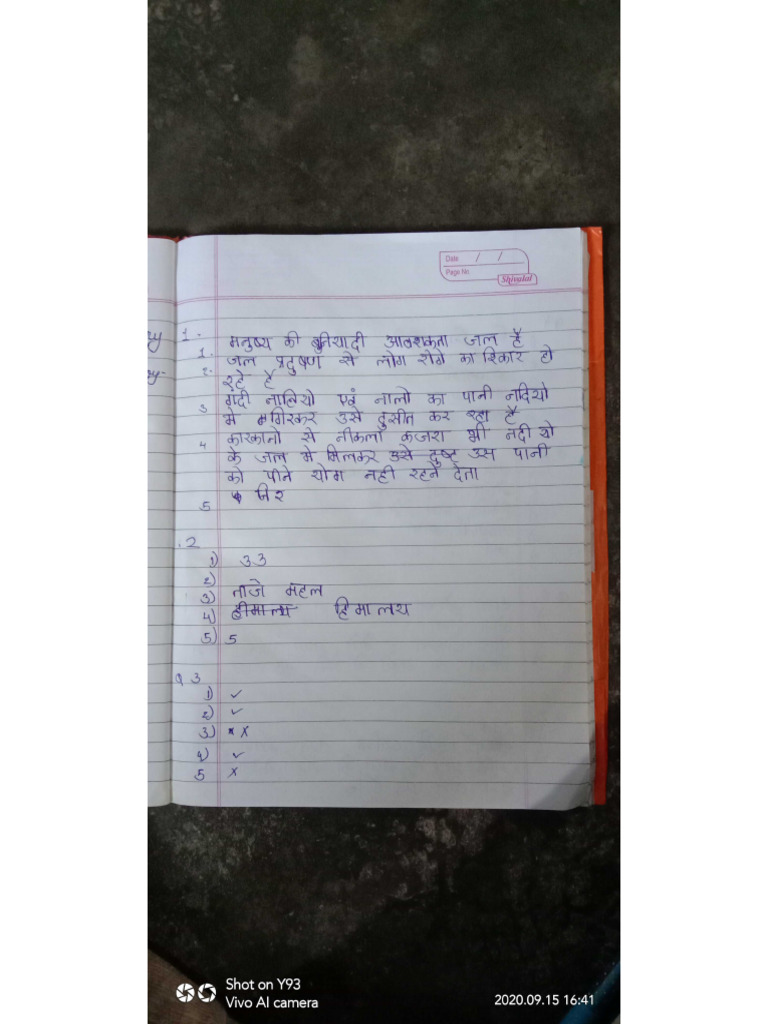 Date / /
Page No.
Shivalal
1. मनुष्य की बुनियादी आवशकता जल है
1.
2. जल प्रदुषण से लोग रोगे का शिकार हो
रहे है
3 गंदी नालियो एवं नालो का पानी नदियो
मे गिरकर उसे दुसीत कर रहा है
4 कारकानो से नीकला कजरा भी नदी यो
के जल मे मिलकर उसे दुष्ट उस पानी
को पीने योग नही रहने देता
5 निर
.2
1) 33
2)
3) ताजे महल
4) हीमालय हिमालय
5) 5
Q 3
1) ✓
2) ✓
3) x x
4) ✓
5 x
Shot on Y93
Vivo AI camera
2020.09.15 16:41